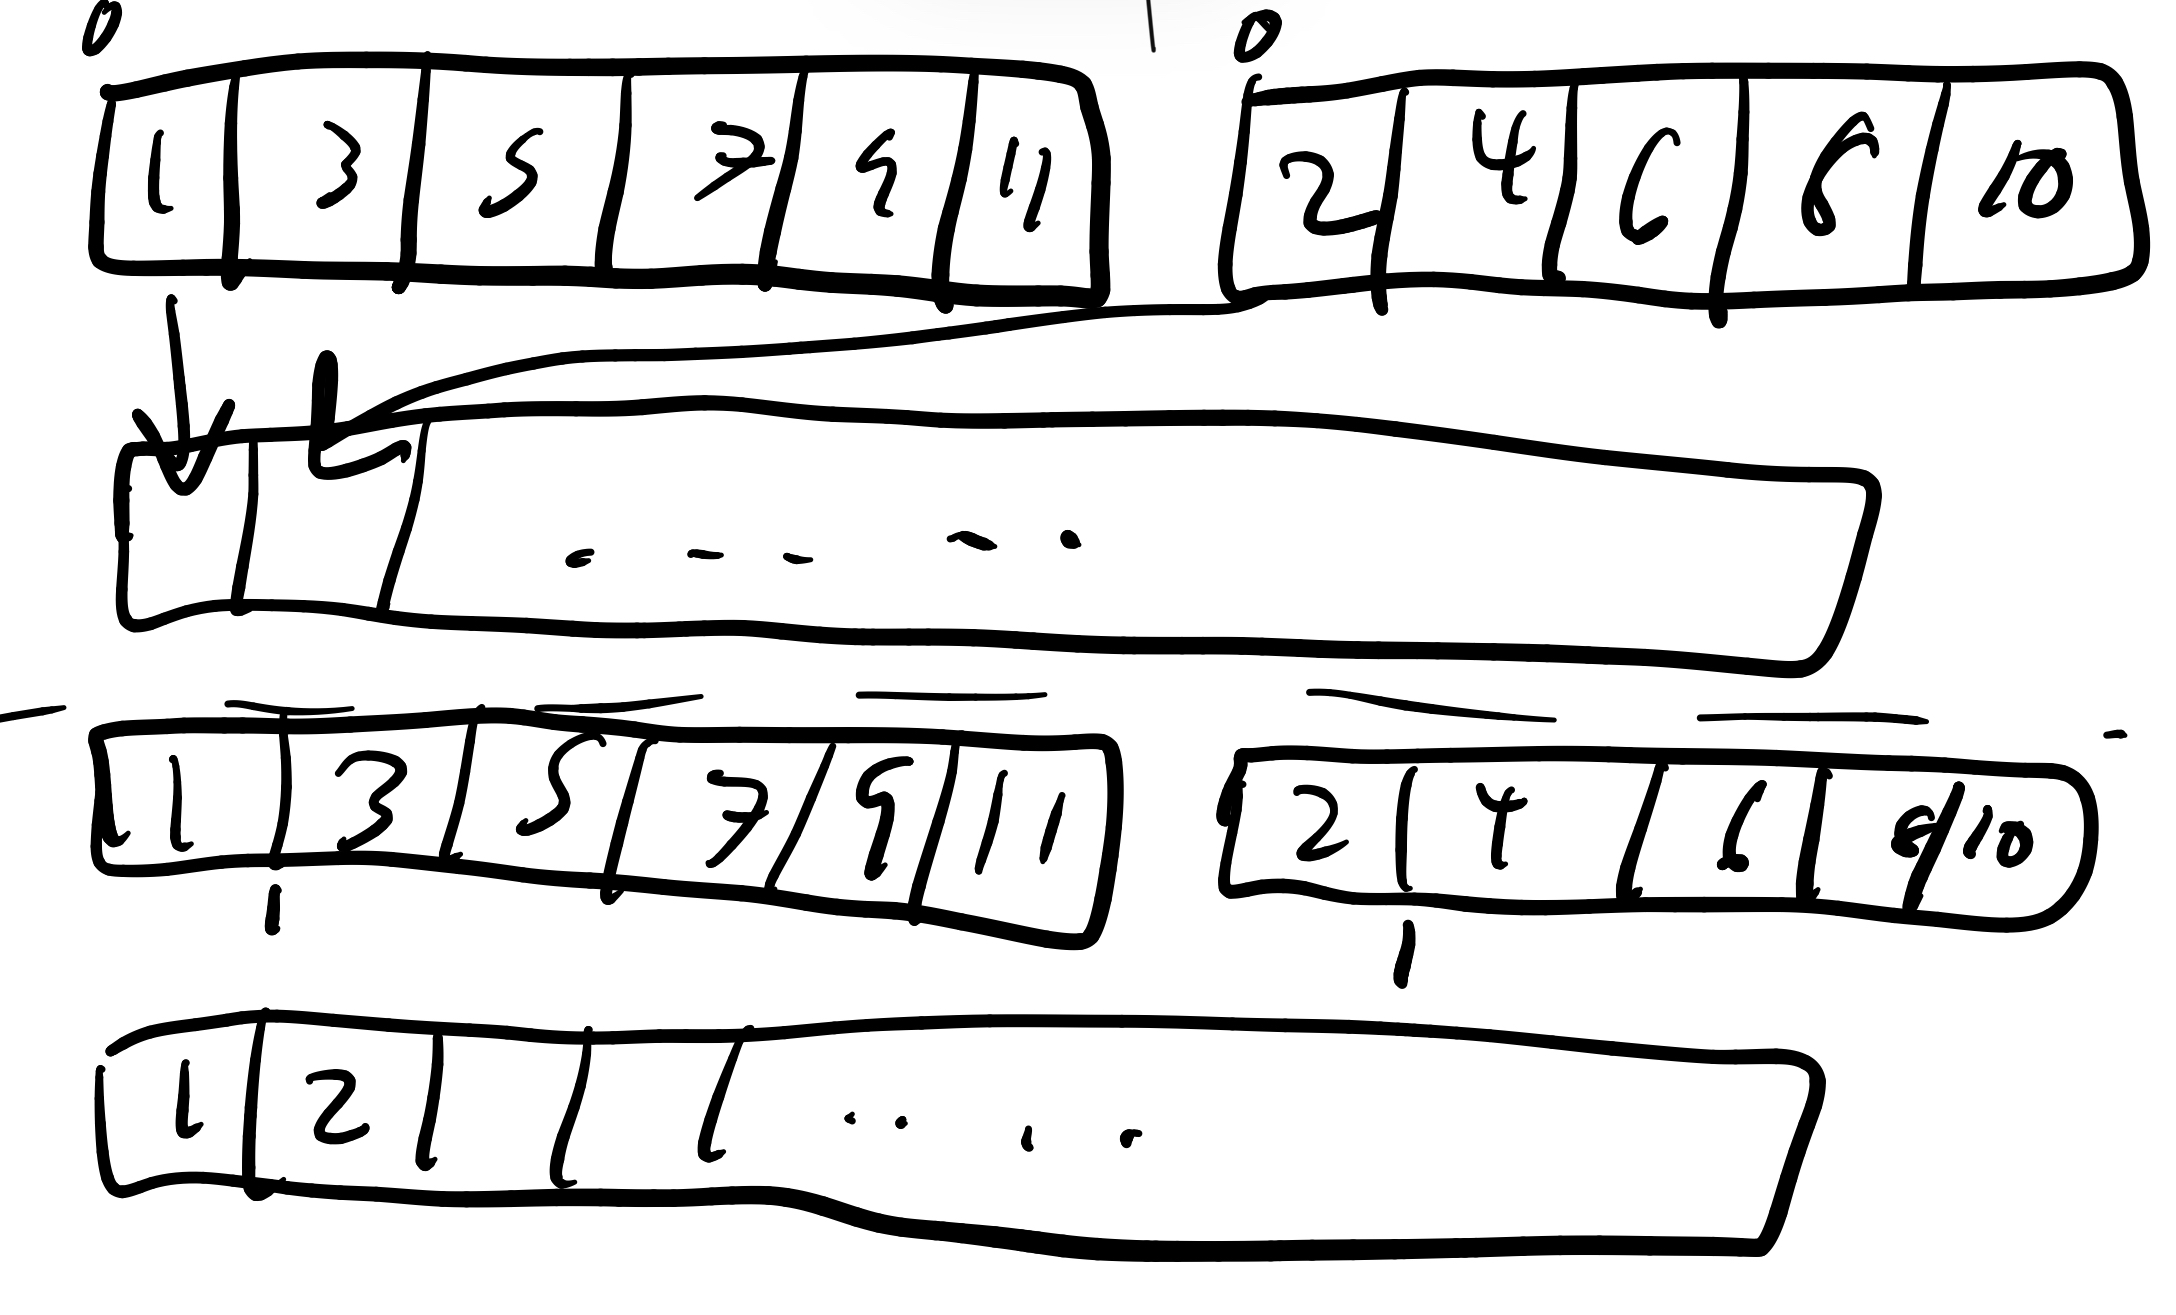 0 0
1 3 5 7 9 11 2 4 6 8 10
1 3 5 7 9 11 2 4 6 8 10
1 1
1 2